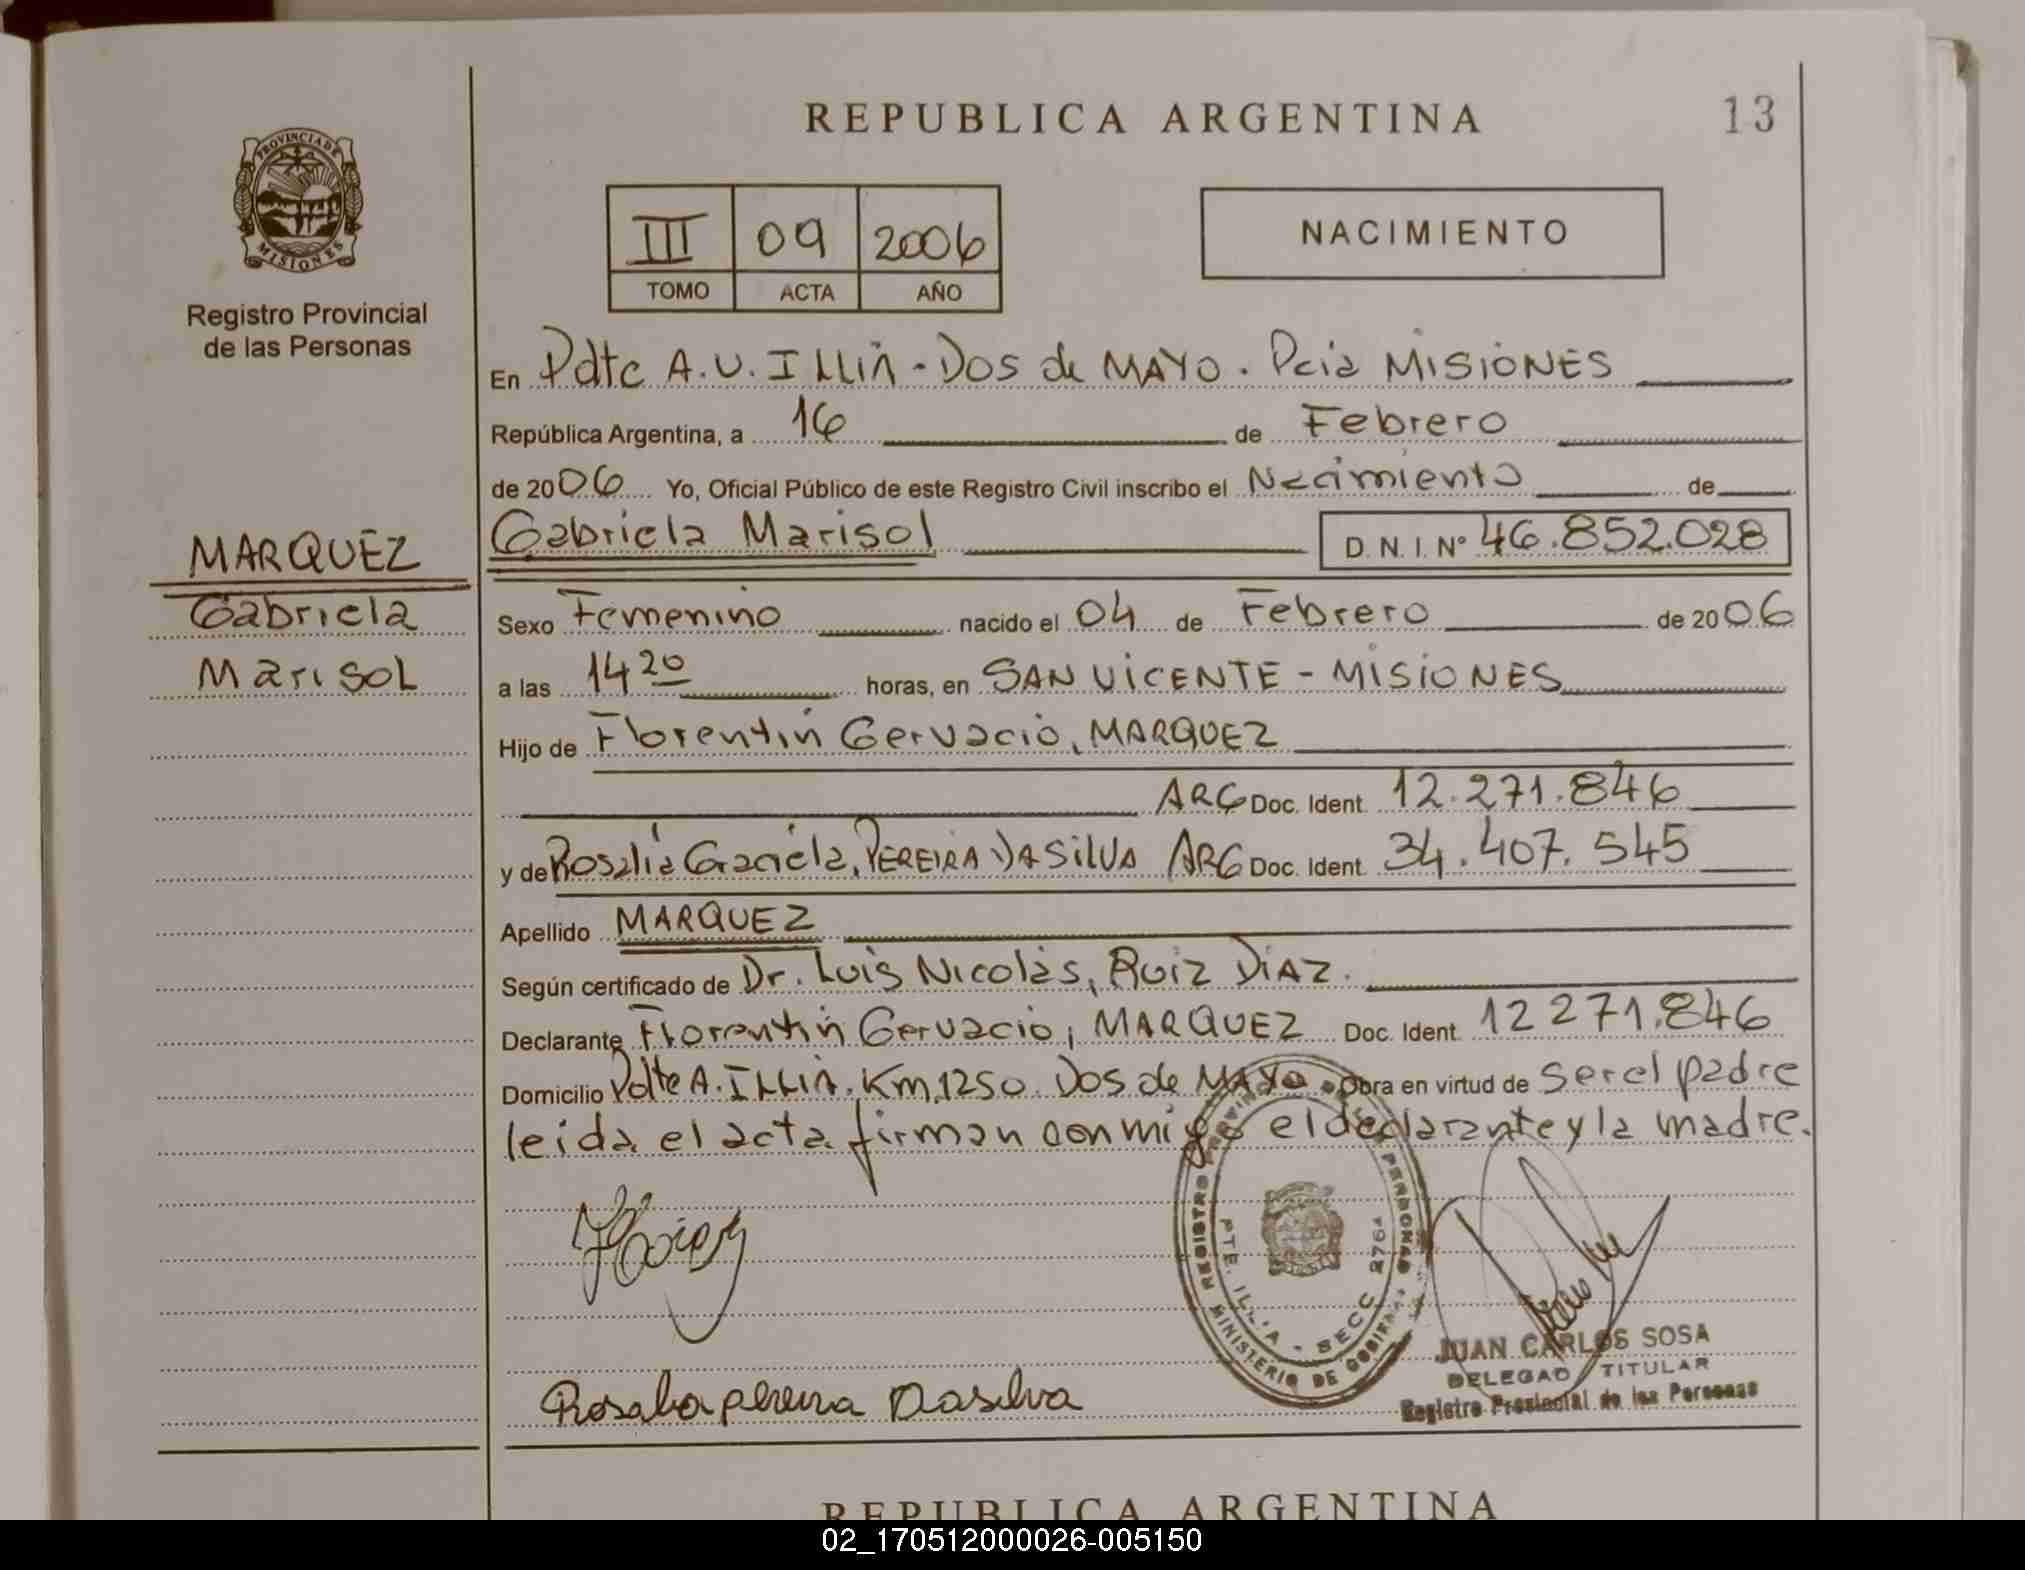 PROVINCIA DE
MISIONES
Registro Provincial
de las Personas
MARQUEZ
Gabriela
Marisol
REPUBLICA ARGENTINA
13
III 09 2006
TOMO ACTA AÑO
NACIMIENTO
En Pdte A.U. ILLIA - DOS de MAYO. Pcia MISIONES
República Argentina, a 16 de Febrero
de 2006 Yo, Oficial Público de este Registro Civil inscribo el Nacimiento de
Gabriela Marisol D. N. I. Nº 46.852.028
Sexo Femenino nacido el 04 de Febrero de 2006
a las 14 20 horas, en SAN VICENTE - MISIONES
Hijo de Florentin Gervacio, MARQUEZ
ARG Doc. Ident. 12.271.846
y de Rosalia Graciela, PEREIRA DASILVA ARG Doc. Ident. 34.407.545
Apellido MARQUEZ
Según certificado de Dr. Luis Nicolás, Ruiz DIAZ.
Declarante Florentin Gervacio, MARQUEZ Doc. Ident. 12 271.846
Domicilio Pdte A. ILLIA. Km, 1250. Dos de MAYO. Obra en virtud de ser el padre
leida el acta firman conmigo el declarante y la madre.
REGISTRO PROVINCIAL DE LAS PERSONAS
MINISTERIO DE GOBIERNO
PTE. ILLIA - SECC 2764
JUAN CARLOS SOSA
DELEGADO TITULAR
Registro Provincial de las Personas
Rosalia pereira Dasilva
REPUBLICA ARGENTINA
02_170512000026-005150